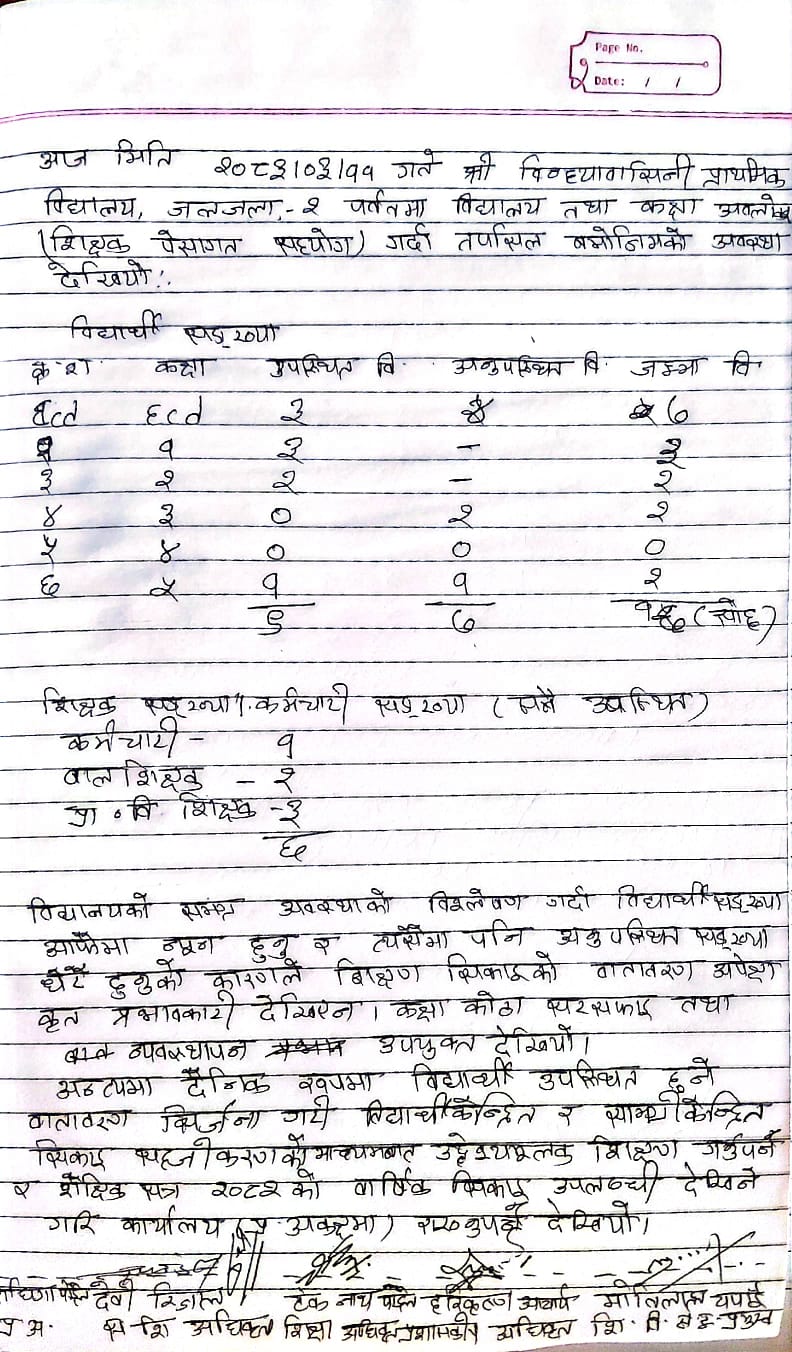 Page No.
२
Date: / /
आज मिति २०८३।०३।११ गते श्री विन्ध्यवासिनी प्राथमिक
विद्यालय, जलजला,-२ पर्वतमा विद्यालय तथा कक्षा अवलोकन
(शिक्षक पेसागत सहयोग) गर्दा तपसिल बमोजिमको अवस्था
देखियो:
विद्यार्थी सङ्ख्या
क्र.श. कक्षा उपस्थित वि. अनुपस्थित वि. जम्मा वि.
Ecd Ecd ३ ४ ७
२ १ ३ - ३
३ २ २ - २
४ ३ ० २ २
५ ४ ० ० ०
६ ५ १ १ २
९ ७ १६ (सोह्र)
शिक्षक सङ्ख्या।कर्मचारी सङ्ख्या (सबै उपस्थित)
कर्मचारी - १
बाल शिक्षक - २
प्रा.वि. शिक्षक -३
६
विद्यालयको समग्र अवस्थाको विश्लेषण गर्दा विद्यार्थी सङ्ख्या
आफैमा न्यून हुनु र त्यसैमा पनि अनुपस्थित सङ्ख्या
धेरै हुनुको कारणले शिक्षण सिकाइको वातावरण अपेक्षा
कृत प्रभावकारी देखिएन। कक्षा कोठा सरसफाइ तथा
व्यवस्थापन उपयुक्त देखियो।
अन्त्यमा दैनिक रुपमा विद्यार्थी उपस्थित हुने
वातावरण सिर्जना गरी विद्यार्थीकेन्द्रित र सामग्रीकेन्द्रित
सिकाइ सहजीकरणको माध्यमबाट उद्देश्यमूलक शिक्षण गर्नुपर्ने
र शैक्षिक सत्र २०८२ को वार्षिक सिकाइ उपलब्धी देखिने
गरि कार्यालय राख्नुपर्ने देखियो।
देवी रिजाल टेक नाथ पौडेल हरिकृष्ण आचार्य मोतिलाल थापा
प्र.अ. शि अधिकृत शिक्षा अधिकृत प्रशासकीय अधिकृत शि. वि. स.